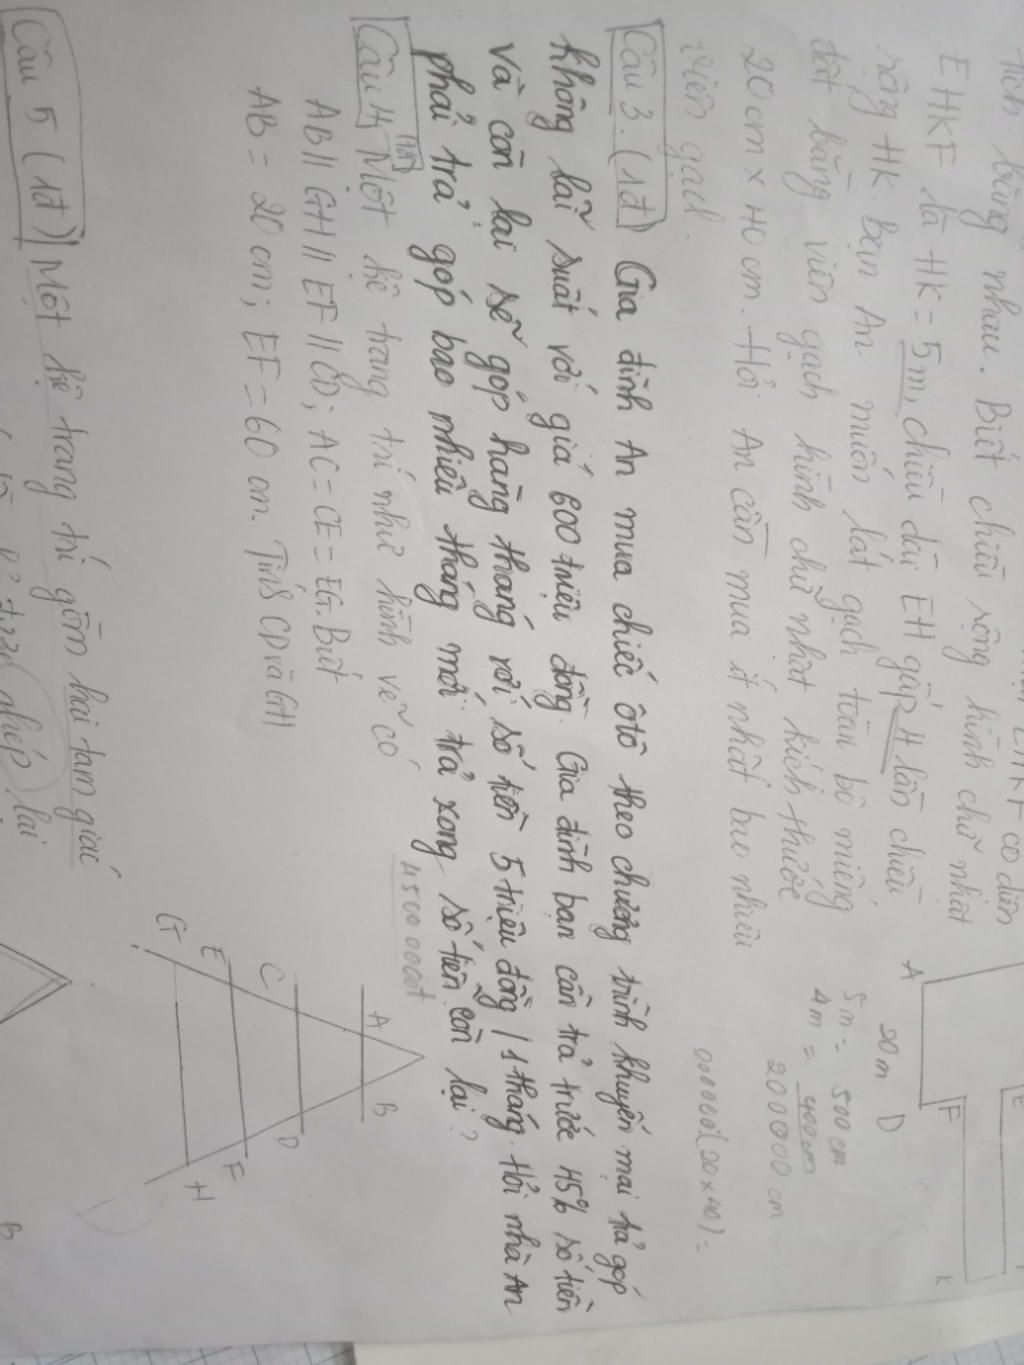 tích bằng nhau. Biết chiều rộng hình chữ nhật
EHKF là HK = 5m, chiều dài EH gấp 4 lần chiều
rộng HK. Bạn An muốn lát gạch toàn bộ miếng
đất bằng viên gạch hình chữ nhật kích thước
20cm x 40cm. Hỏi An cần mua ít nhất bao nhiêu
viên gạch.
A
20m
D
F
E
K
5m = 500cm
4m = 400cm
200000cm
(20x40) =
Câu 3. (1đ) Gia đình An mua chiếc ôtô theo chương trình khuyến mại trả góp
không lãi suất với giá 600 triệu đồng. Gia đình bạn cần trả trước 45% số tiền
và còn lại sẽ góp hàng tháng với số tiền 5 triệu đồng / 1 tháng. Hỏi nhà An
phải trả góp bao nhiêu tháng mới trả xong số tiền còn lại?
Câu 4 (1đ) Một kệ trang trí như hình vẽ có
AB // GH // EF // CD; AC = CE = EG. Biết
AB = 20cm; EF = 60cm. Tính CD và GH
A
B
C
D
E
F
G
H
Câu 5 (1đ) Một kệ trang trí gồm hai tam giác
ghép lại
B